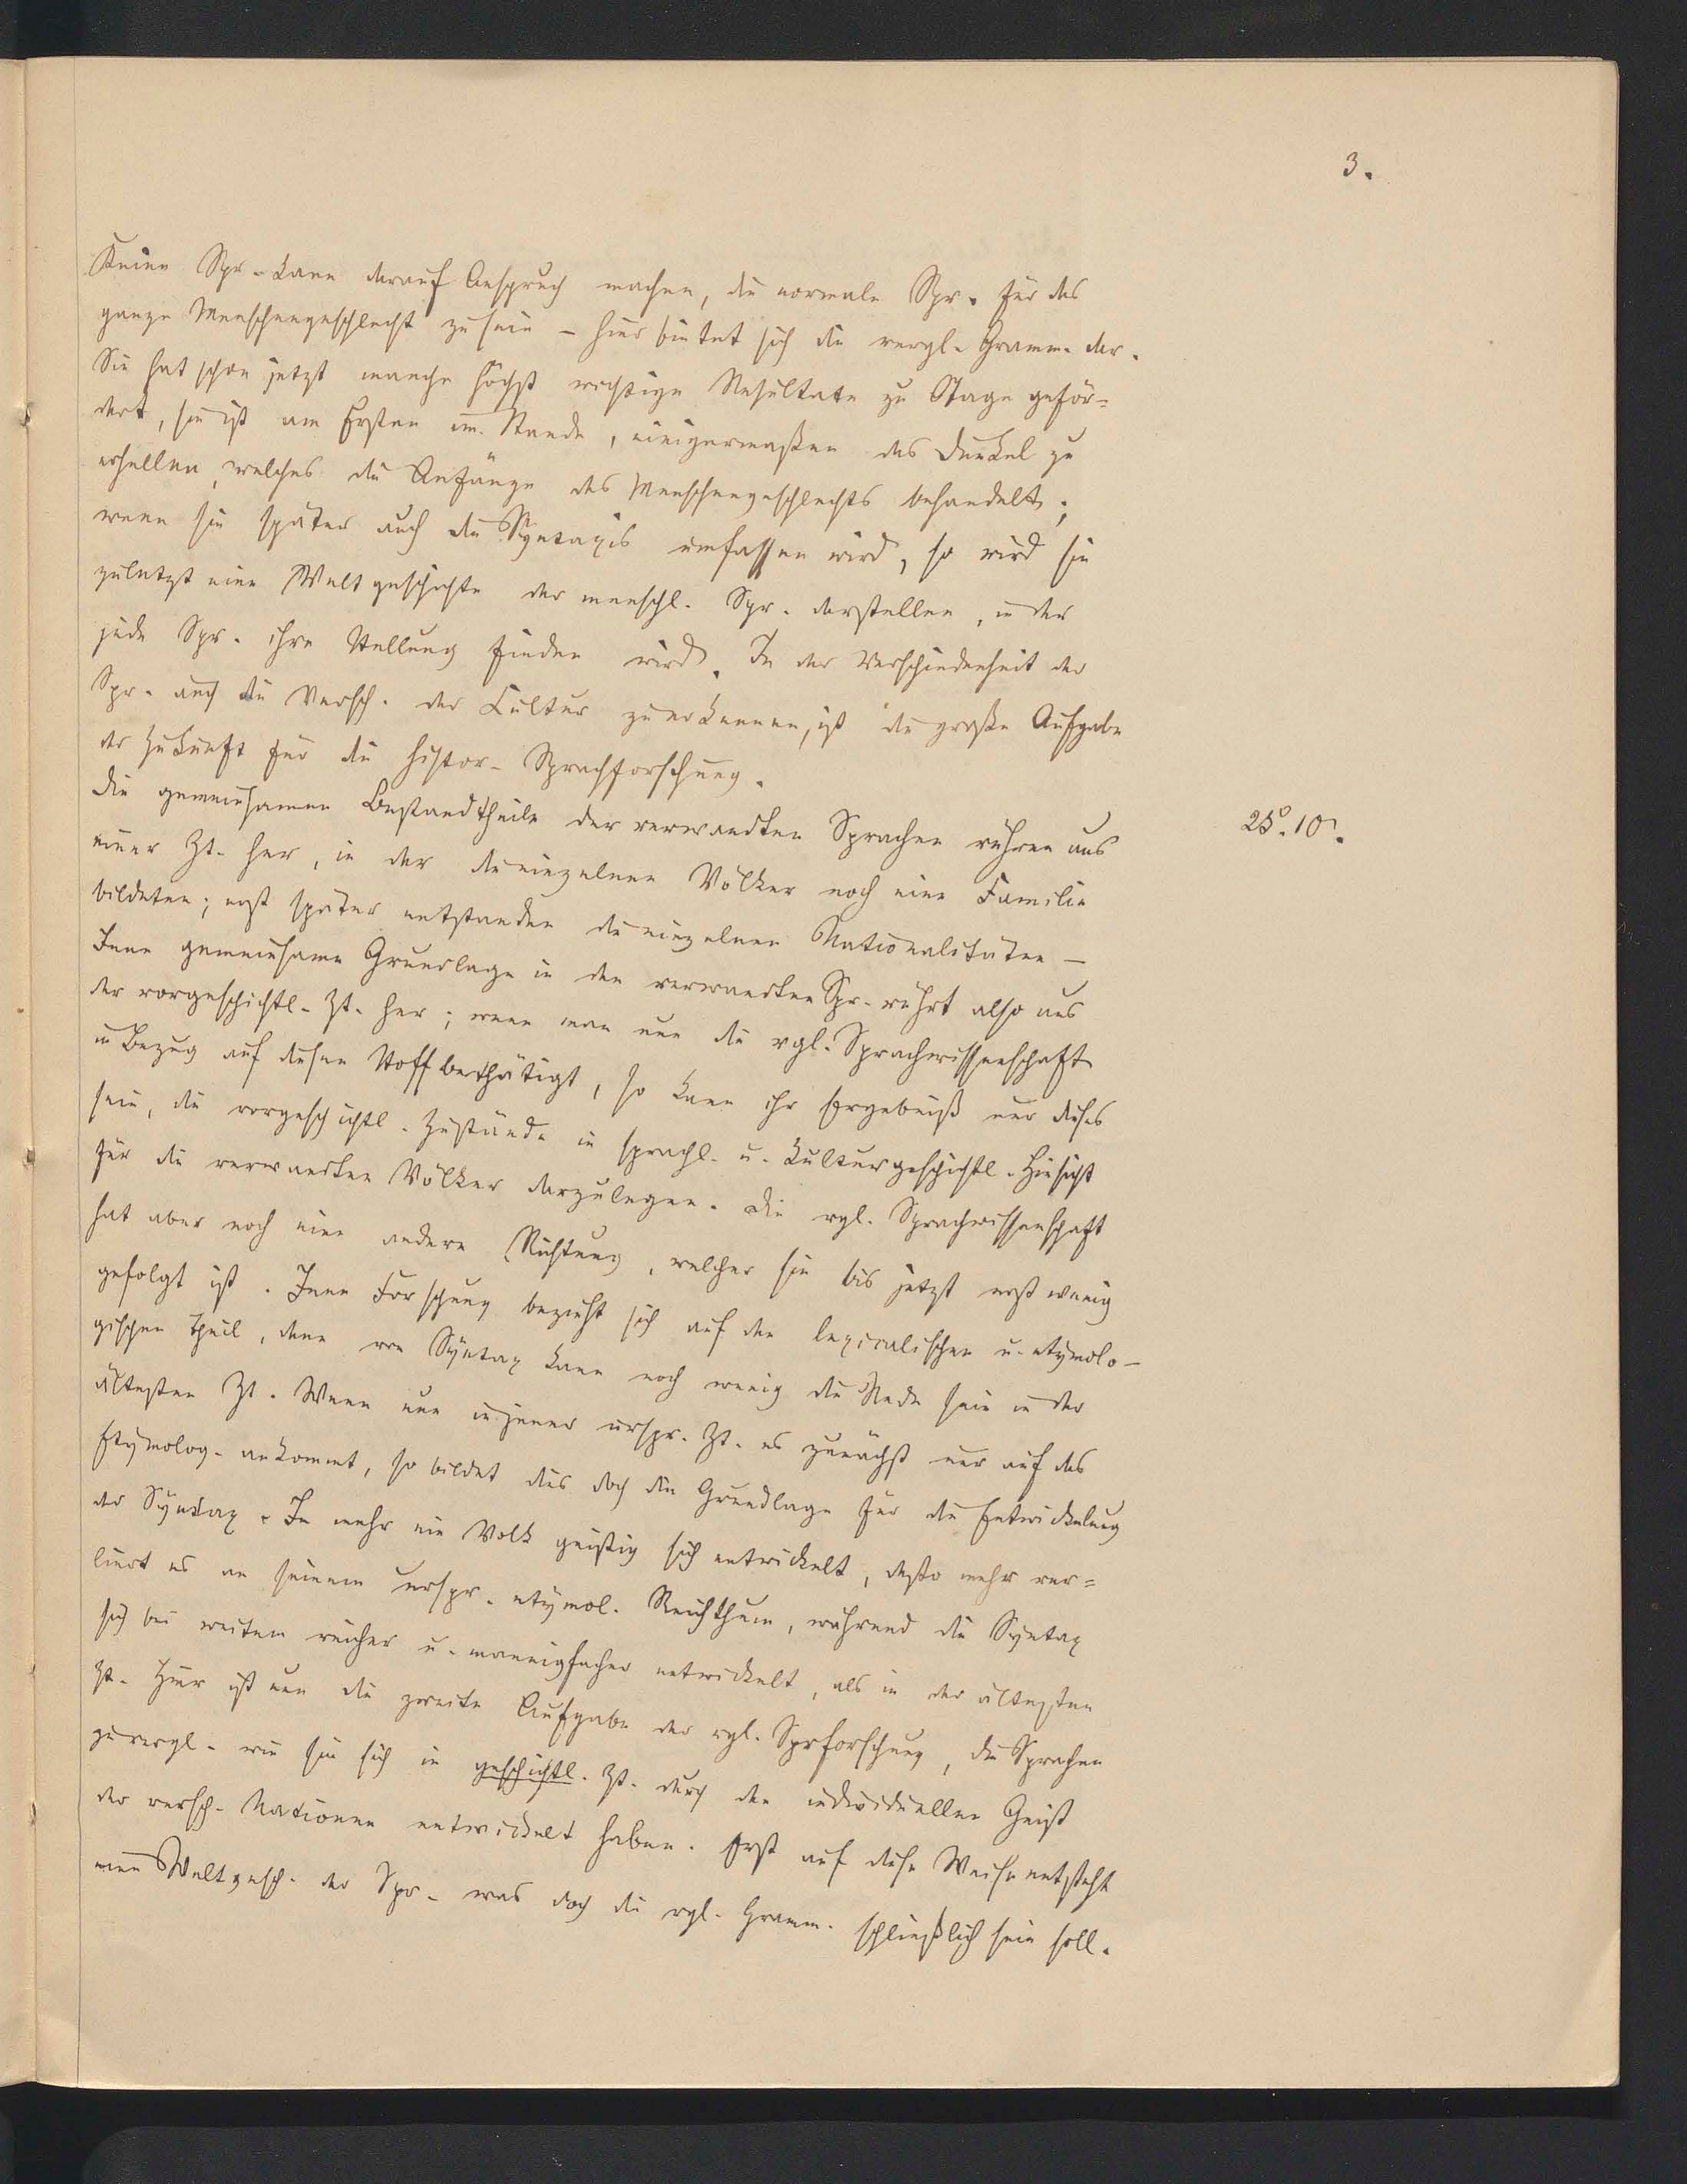 3.
Keine Spr. kann darauf Anspruch machen, die normale Spr. für das
ganze Menschengeschlecht zu sein – hier bietet sich die vergl. Gramm. dar.
Sie hat schon jetzt manche höchst wichtige Resultate zu Tage geför=
dert, sie ist am Ersten im Stande, einigermaßen das Dunkel zu
erhellen, welches die Anfänge des Menschengeschlechts behandelt;
wenn sie später auch die Syntaxis umfassen wird, so wird sie
zuletzt eine Weltgeschichte der menschl. Spr. darstellen, in der
jede Spr. ihre Stellung finden wird. In der Verschiedenheit der
Spr. auch die Versch. der Cultur zu erkennen, ist die große Aufgabe
der Zukunft für die histor. Sprachforschung.
Die gemeinsamen Bestandtheile der verwandten Sprachen rühren aus
25.10.
einer Zt. her, in der die einzelnen Völker noch eine Familie
bildeten; erst später entstanden die einzelnen Nationalitäten –
Jene gemeinsame Grundlage in den verwandten Spr. rührt also aus
der vorgeschichtl. Zt. her; wenn man nun die vgl. Sprachwissenschaft
in Bezug auf diesen Stoff bethätigt, so kann ihr Ergebniß nur dieses
sein, die vorgeschichtl. Zustände in sprachl. u. kulturgeschichtl. Hinsicht
für die verwandten Völker darzulegen. Die vgl. Sprachwissenschaft
hat aber noch eine andere Richtung, welcher sie bis jetzt erst wenig
gefolgt ist. Jene Forschung bezieht sich auf den lexicalischen u. etymolo–
gischen Theil, denn von Syntax kann noch wenig die Rede sein in der
ältesten Zt. Wenn nun in jener urspr. Zt. es zunächst nur auf das
Etymolog. ankommt, so bildet dies doch die Grundlage für die Entwickelung
der Syntax. Je mehr ein Volk geistig sich entwickelt, desto mehr ver=
liert es an seinem urspr. etymol. Reichthum, während die Syntax
sich bei weitem reicher u. mannigfacher entwickelt, als in der ältesten
Zt. Hier ist nun die zweite Aufgabe der vgl. Sprforschung, die Sprachen
zu vergl. wie sie sich in geschichtl. Zt. durch den individuellen Geist
der versch. Nationen entwickelt haben. Erst auf diese Weise entsteht
eine Weltgesch. der Spr. was doch die vgl. Gramm. schließlich sein soll.